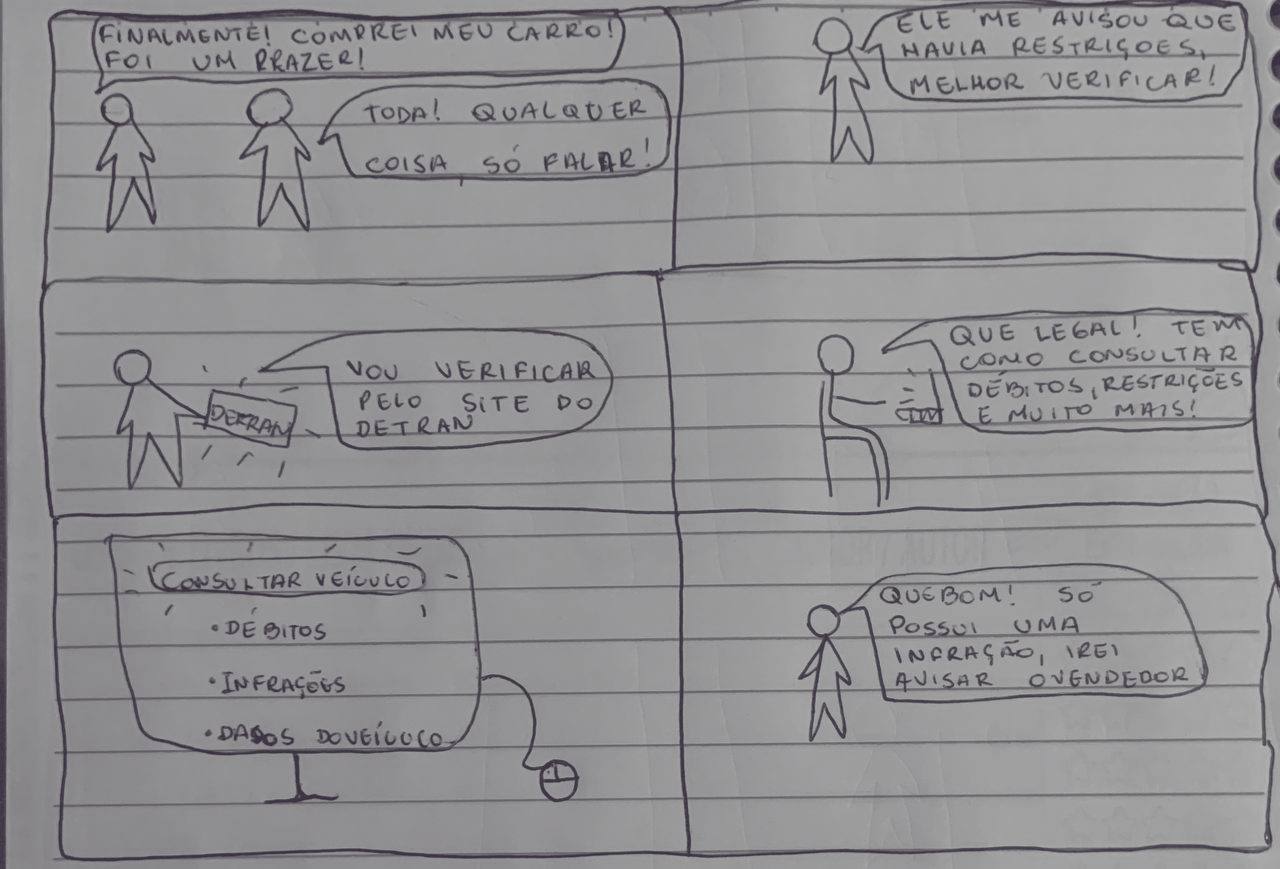 FINALMENTE! COMPREI MEU CARRO!
FOI UM PRAZER!
TODA! QUALQUER
COISA SÓ FALAR!
ELE ME AVISOU QUE
HAVIA RESTRIÇOES,
MELHOR VERIFICAR!
DETRAN
VOU VERIFICAR
PELO SITE DO
DETRAN
QUE LEGAL! TEM
COMO CONSULTAR
DÉBITOS, RESTRIÇÕES
E MUITO MAIS!
CONSULTAR VEÍCULO
•DÉBITOS
•INFRAÇÕES
•DADOS DO VEÍCULO
QUE BOM! SÓ
POSSUI UMA
INFRAÇÃO, IREI
AVISAR O VENDEDOR